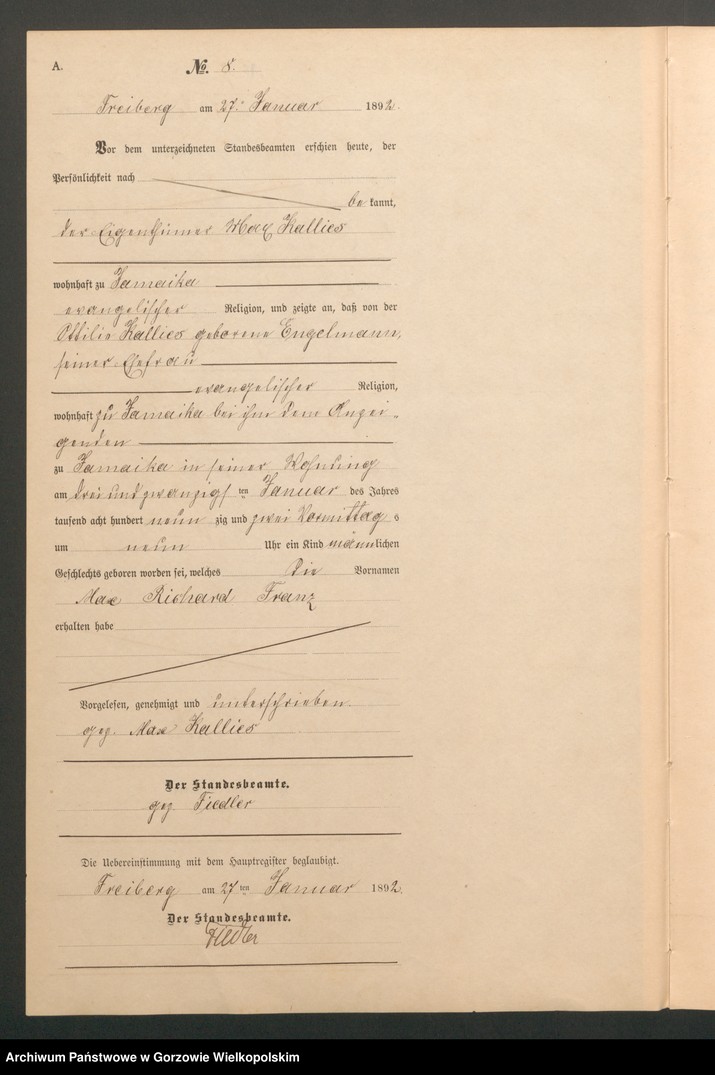 A.
No. 8.
Freiberg am 27. Januar 1892.
Vor dem unterzeichneten Standesbeamten erschien heute, der
Persönlichkeit nach
be kannt,
der Eigenthümer Max Kallies
wohnhaft zu Jamaika
evangelischer Religion, und zeigte an, daß von der
Ottilie Kallies geborene Engelmann,
seiner Ehefrau
evangelischer Religion,
wohnhaft zu Jamaika bei ihm dem Anzei-
genden
zu Jamaika in seiner Wohnung
am dreiundzwanzigs ten Januar des Jahres
tausend acht hundert neun zig und zwei Vormittag s
um neun Uhr ein Kind männlichen
Geschlechts geboren worden sei, welches die Vornamen
Max Richard Franz
erhalten habe
Vorgelesen, genehmigt und unterschrieben
gez. Max Kallies
Der Standesbeamte.
gez Fiedler
Die Uebereinstimmung mit dem Hauptregister beglaubigt.
Freiberg am 27 ten Januar 1892.
Der Standesbeamte.
Fiedler
Archiwum Państwowe w Gorzowie Wielkopolskim